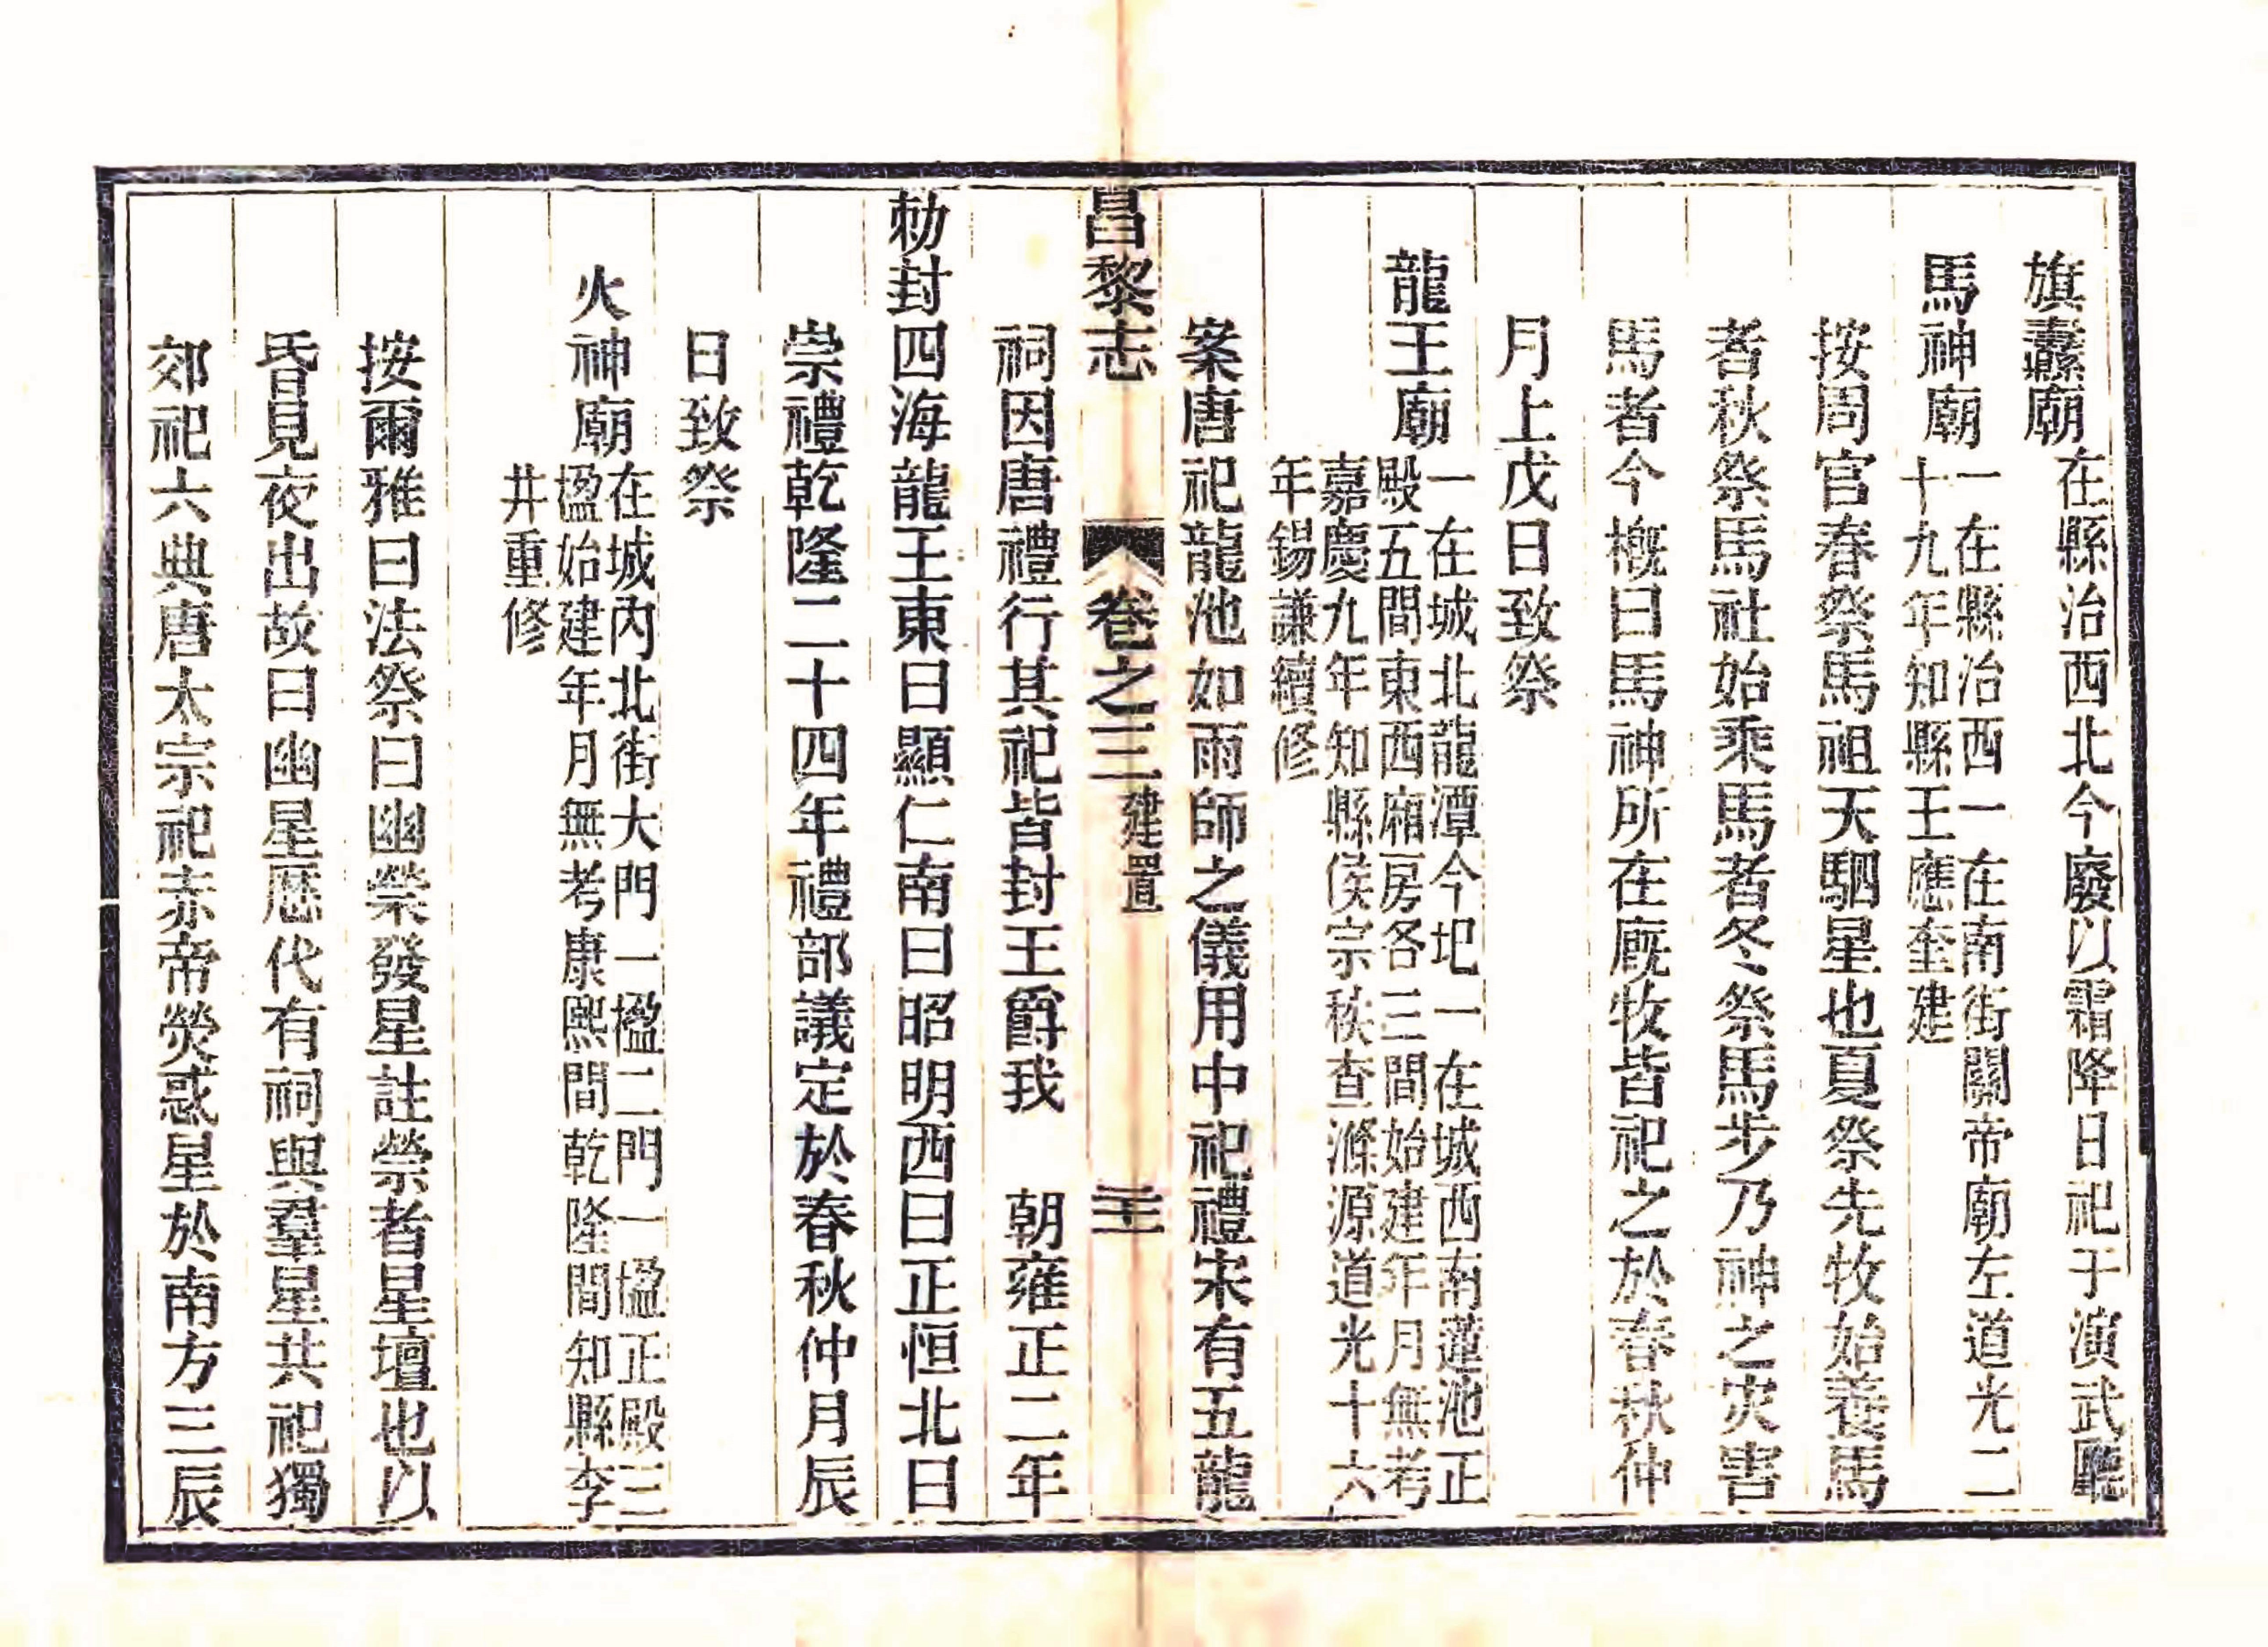 旗纛廟在縣治西北今廢以霜降日祀于演武廳
馬神廟一在縣治西一在南街關帝廟左道光二
十九年知縣王應奎建
按周官春祭馬祖天駟星也夏祭先牧始養馬
者秋祭馬社始乘馬者冬祭馬步乃神之灾害
馬者今槪曰馬神所在廐牧皆祀之於春秋仲
月上戊日致祭
龍王廟一在城北龍潭今圯一在城西南蓮池正
殿五間東西廂房各三間始建年月無考
嘉慶九年知縣侯宗秩查滌源道光十六
年錫謙續修
案唐祀龍池如雨師之儀用中祀禮宋有五龍
昌黎志 卷之三 建置 二十一
祠因唐禮行其祀皆封王爵我 朝雍正二年
勅封四海龍王東曰顯仁南曰昭明西曰正恒北曰
崇禮乾隆二十四年禮部議定於春秋仲月辰
日致祭
火神廟在城內北街大門一楹二門一楹正殿三
楹始建年月無考康熙間乾隆間知縣李
井重修
按爾雅曰法祭曰幽禜發星註禜者星壇也以
昏見夜出故曰幽星歷代有祠與羣星共祀獨
郊祀六典唐太宗祀赤帝熒惑星於南方三辰